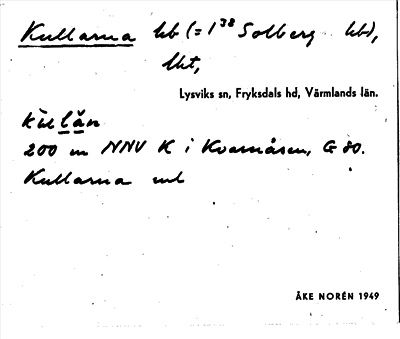 Kullarna hb (= 1³⁸ Solberg hb),
lht,
Lysviks sn, Fryksdals hd, Värmlands län.
kùlăn
200 m NNV K i Kvarnåsen, G 80.
Kullarna ml
ÅKE NORÉN 1949